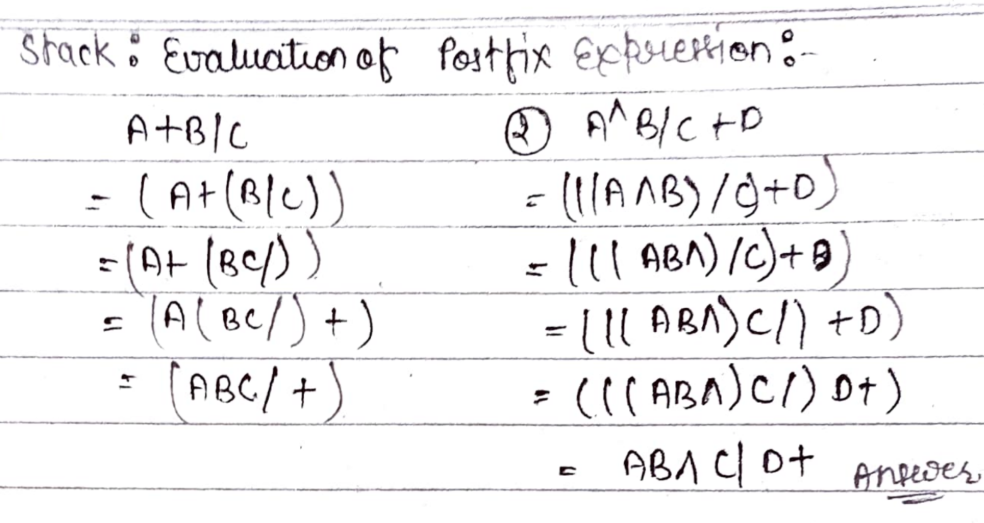 Stack : Evaluation of Postfix Expression :-
A+B/C
= (A+(B/C))
= (A+ (BC/))
= (A(BC/)+)
= (ABC/+)
② A^B/C+D
= (((A∧B)/C)+D)
= (((AB∧)/C)+D)
= (((AB∧)C/)+D)
= (((AB∧)C/)D+)
= AB∧C/D+ Answer